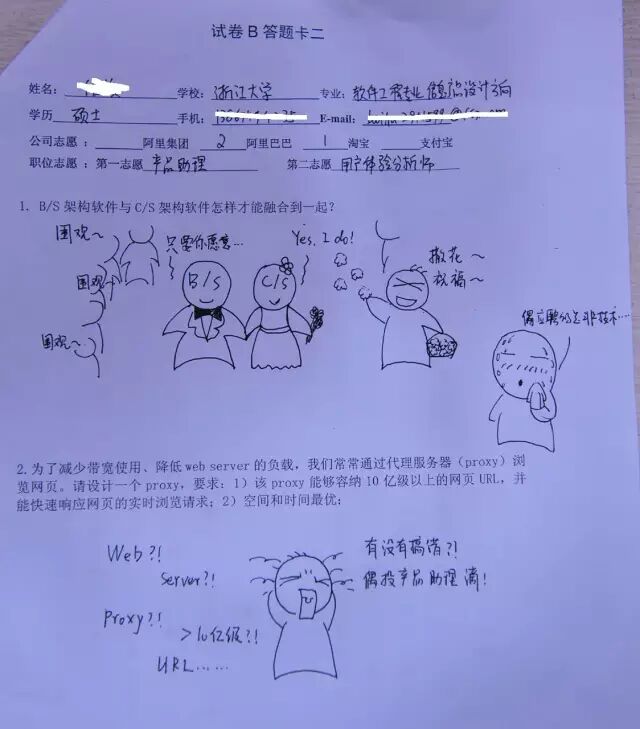 试卷 B 答题卡二
姓名： 学校：浙江大学 专业：软件工程专业 信息产品设计方向
学历 硕士 手机： E-mail:
公司志愿： 阿里集团 2 阿里巴巴 1 淘宝 支付宝
职位志愿：第一志愿 产品助理 第二志愿 用户体验分析师
1. B/S 架构软件与 C/S 架构软件怎样才能融合到一起？
围观～
只要你愿意…
Yes, I do!
撒花～
祝福～
围观～
B/S
C/S
围观～
偶应聘的是非技术…
2.为了减少带宽使用、降低 web server 的负载，我们常常通过代理服务器（proxy）浏
览网页。请设计一个 proxy，要求：1）该 proxy 能够容纳 10 亿级以上的网页 URL，并
能快速响应网页的实时浏览请求；2）空间和时间最优；
Web?!
有没有搞错?!
Server?!
偶投产品助理滴！
Proxy?!
>10亿级?!
URL……